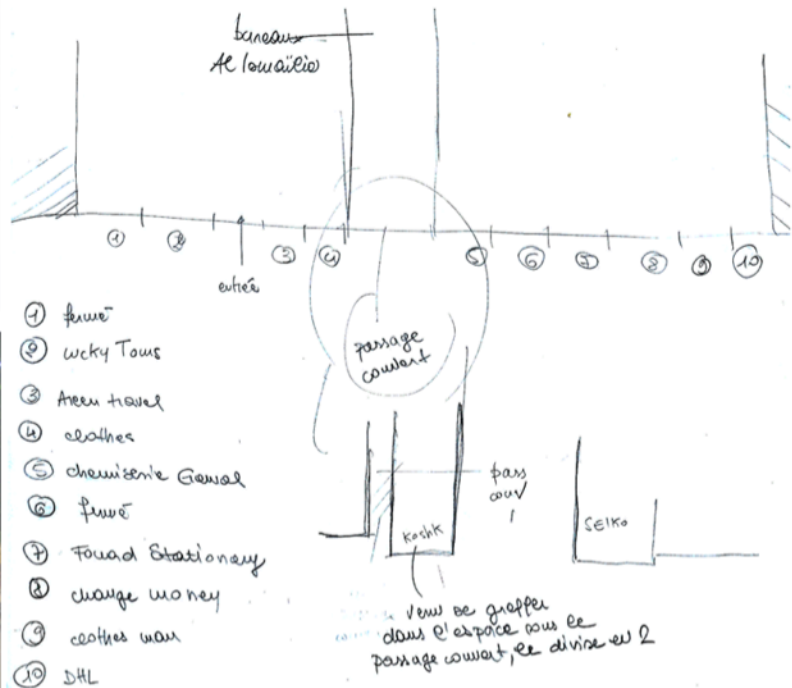 bureaux
Al Ismaïlia
① ② entrée ③ ④ ⑤ ⑥ ⑦ ⑧ ⑨ ⑩
passage
couvert
① fermé
② wcky Tours
③ Areen travel
④ clothes
⑤ chemiserie Gamal
⑥ fermé
⑦ Fouad Stationary
⑧ change money
⑨ clothes man
⑩ DHL
pass
couv
Koshk
SEIKO
venu se greffer
dans l'espace sous le
passage couvert, le divise en 2